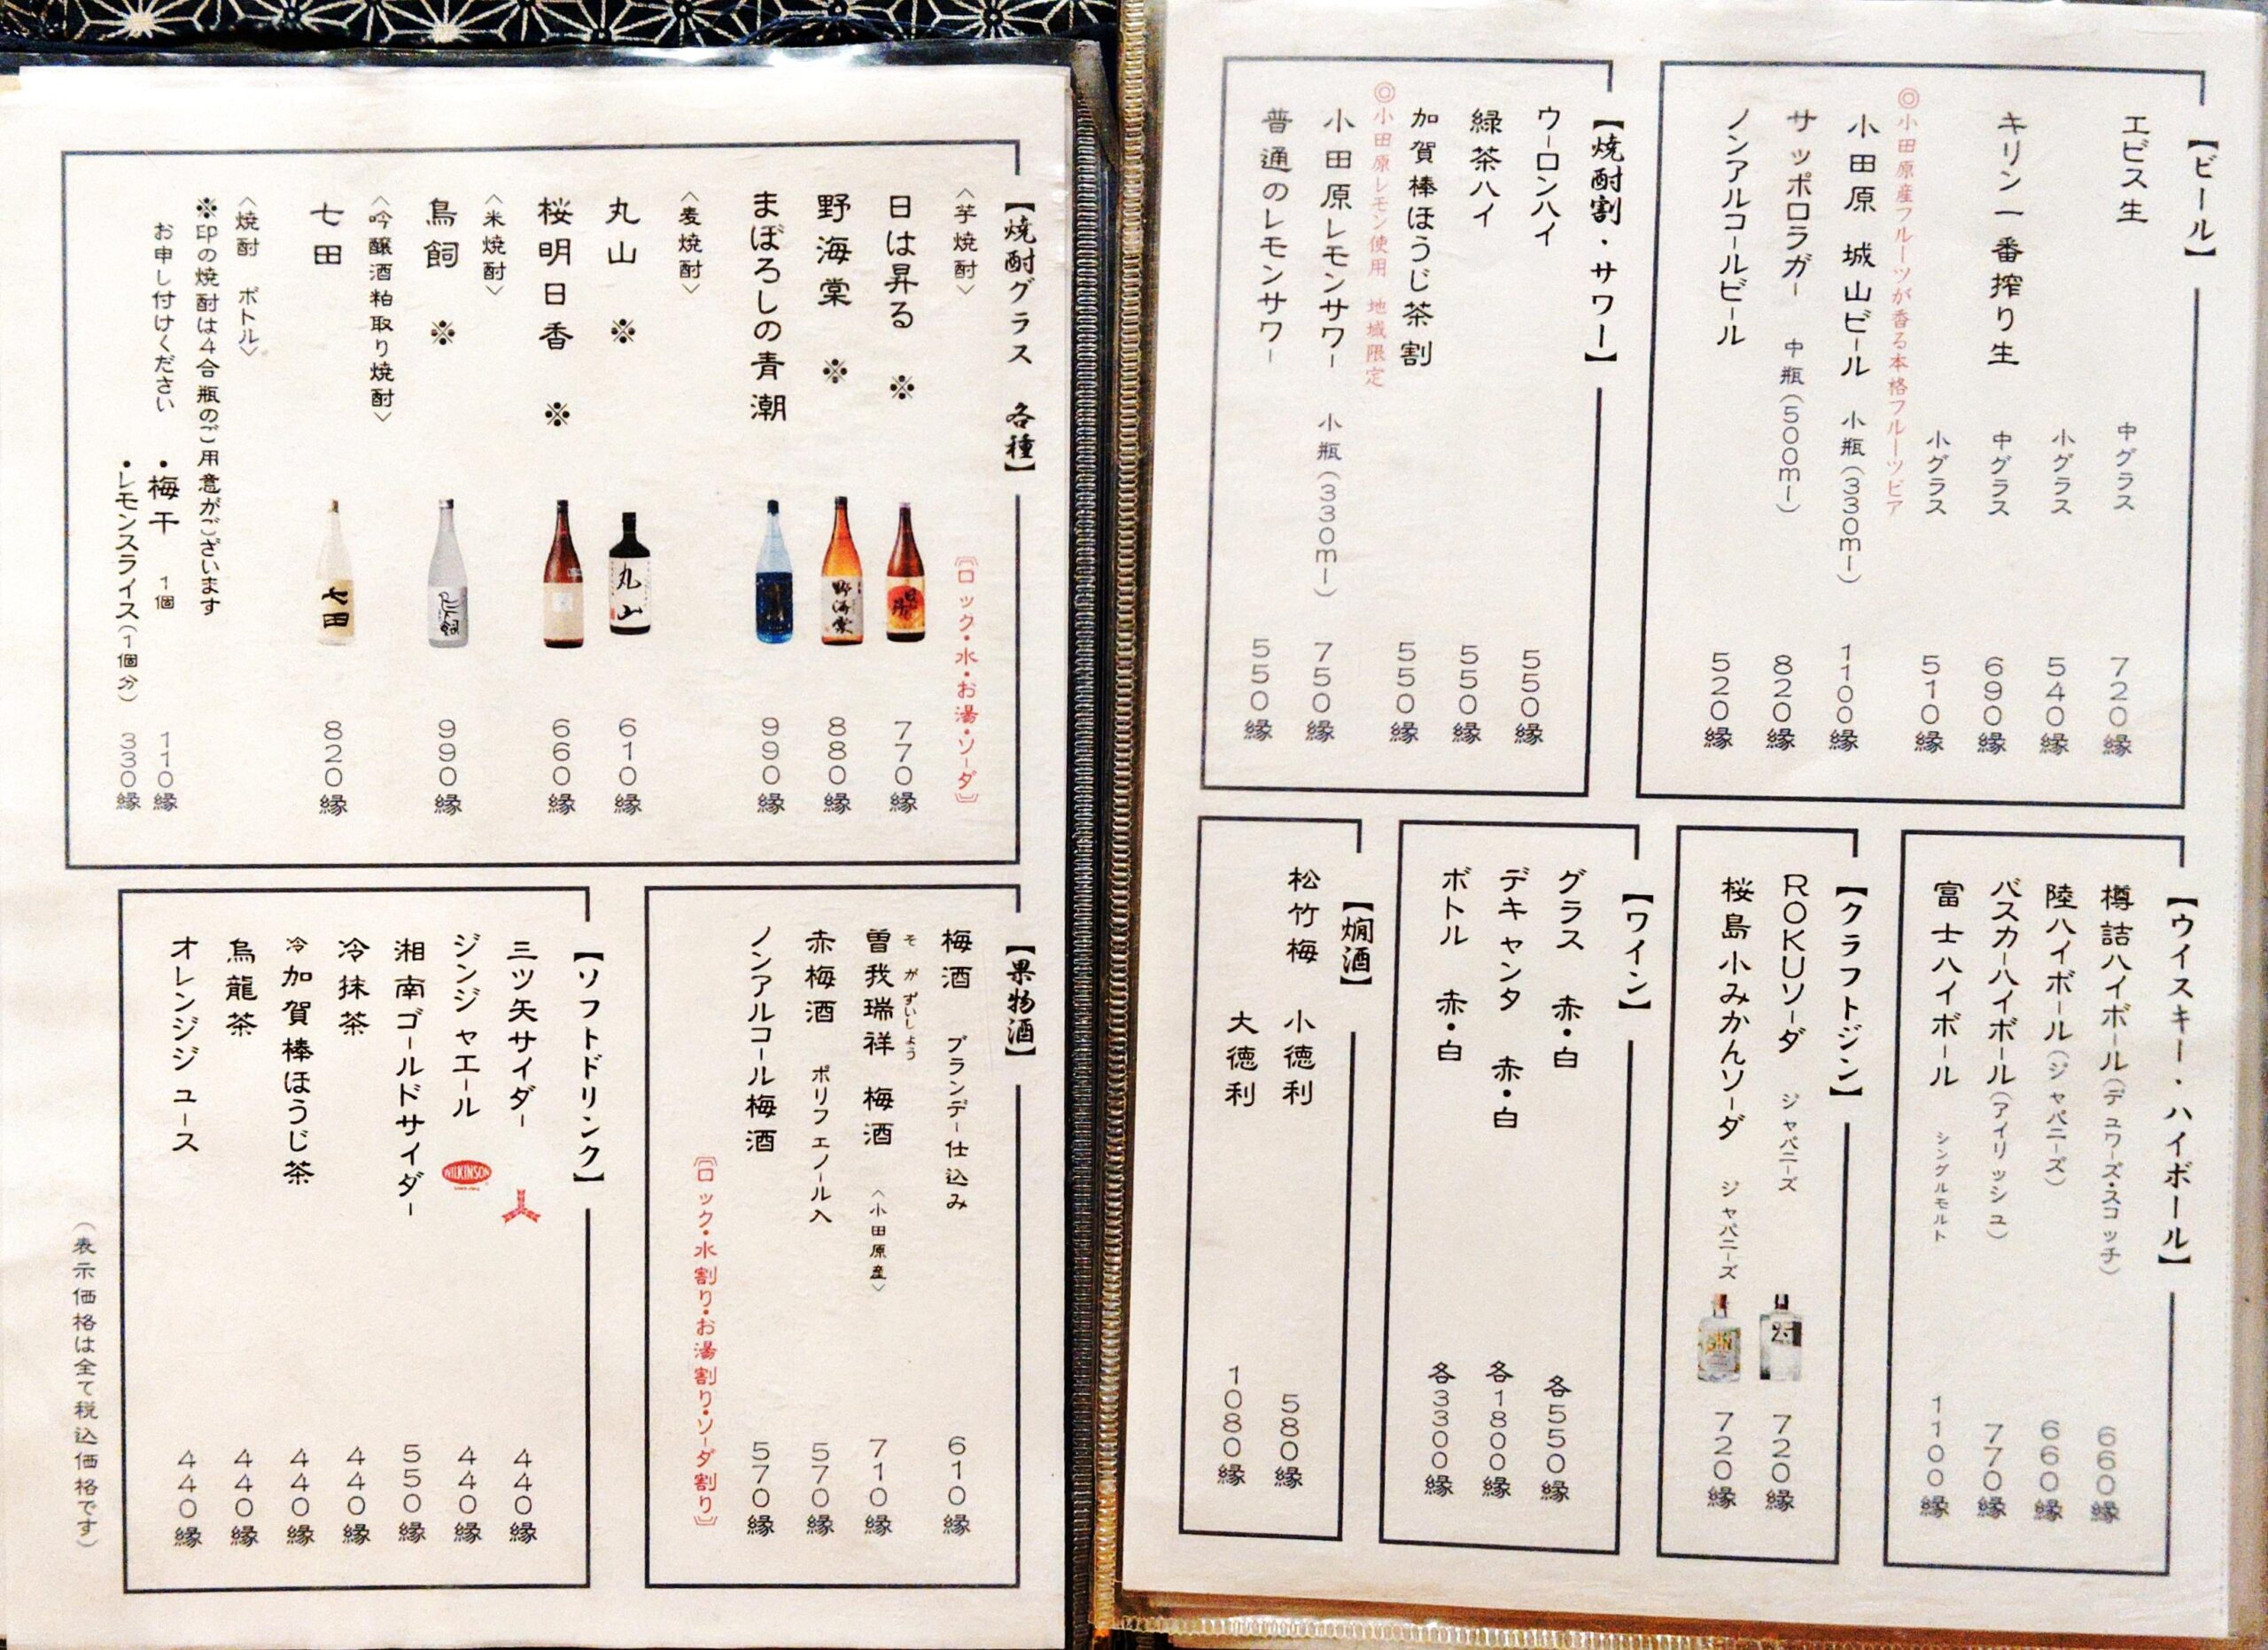 【ビール】
エビス生 中グラス 720縁
小グラス 540縁
キリン一番搾り生 中グラス 690縁
小グラス 510縁
◎小田原産フルーツが香る本格フルーツビア
小田原 城山ビール 小瓶(330ml) 1100縁
サッポロラガー 中瓶(500ml) 820縁
ノンアルコールビール 520縁
【焼酎割・サワー】
ウーロンハイ 550縁
緑茶ハイ 550縁
加賀棒ほうじ茶割 550縁
◎小田原レモン使用 地域限定
小田原レモンサワー 小瓶(330ml) 750縁
普通のレモンサワー 550縁
【ウイスキー・ハイボール】
樽詰ハイボール(デュワーズ・スコッチ) 660縁
陸ハイボール(ジャパニーズ) 660縁
バスカーハイボール(アイリッシュ) 770縁
富士ハイボール シングルモルト 1100縁
【クラフトジン】
ROKUソーダ ジャパニーズ 720縁
桜島小みかんソーダ ジャパニーズ 720縁
【ワイン】
グラス 赤・白 各550縁
デキャンタ 赤・白 各1800縁
ボトル 赤・白 各3300縁
【燗酒】
松竹梅 小徳利 580縁
大徳利 1080縁
【焼酎グラス 各種】
〈芋焼酎〉 〔ロック・水・お湯・ソーダ〕
日は昇る ※ 770縁
野海棠 ※ 880縁
まぼろしの青潮 990縁
〈麦焼酎〉
丸山 ※ 丸山 610縁
桜明日香 ※ 660縁
〈米焼酎〉
鳥飼 ※ 990縁
〈吟醸酒粕取り焼酎〉
七田 七田 820縁
〈焼酎 ボトル〉
※印の焼酎は4合瓶のご用意がございます
お申し付けください
・梅干 1個 110縁
・レモンスライス(1個分) 330縁
【果物酒】
梅酒 ブランデー仕込み 610縁
そがずいしょう
曽我瑞祥 梅酒 〈小田原産〉 710縁
赤梅酒 ポリフェノール入 570縁
ノンアルコール梅酒 570縁
〔ロック・水割り・お湯割り・ソーダ割り〕
【ソフトドリンク】
三ツ矢サイダー 440縁
ジンジャエール WILKINSON 440縁
湘南ゴールドサイダー 550縁
冷抹茶 440縁
冷加賀棒ほうじ茶 440縁
烏龍茶 440縁
オレンジジュース 440縁
(表示価格は全て税込価格です)